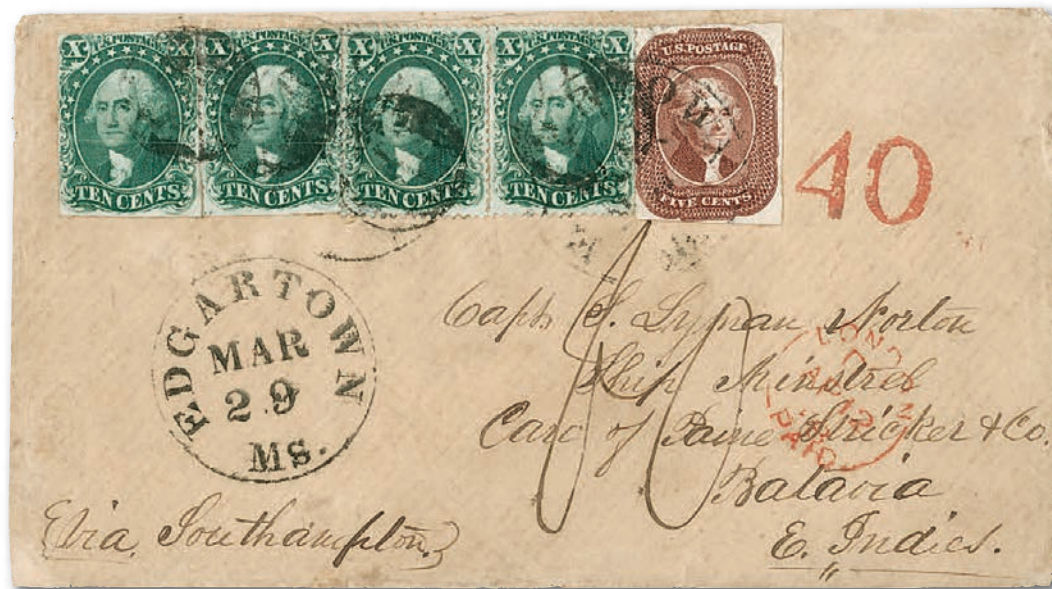 X U.S. POSTAGE X
TEN CENTS
X U.S. POSTAGE X
TEN CENTS
X U.S. POSTAGE X
TEN CENTS
X U.S. POSTAGE X
TEN CENTS
U.S. POSTAGE
FIVE CENTS
40
EDGARTOWN
MAR
29
MS.
Capt. S. Lyman Norton
Ship Minstrel
Care of Paine Stricker & Co.
Batavia
E. Indies.
Via. Southampton.
PAID